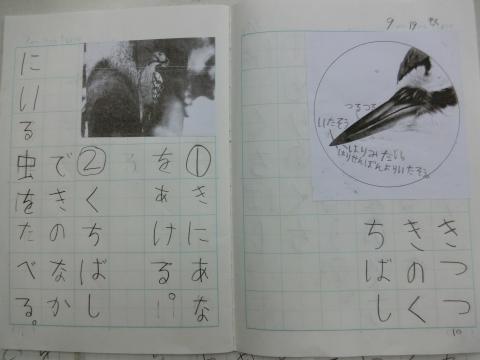 9 19
つるつる
いたそう
はりみたい
はりせんぼんよりいたそう。
きつつ
きのく
ちばし
10
①きにあな
をあける!。
②くちばし
できのなか
にいる虫をたべる。